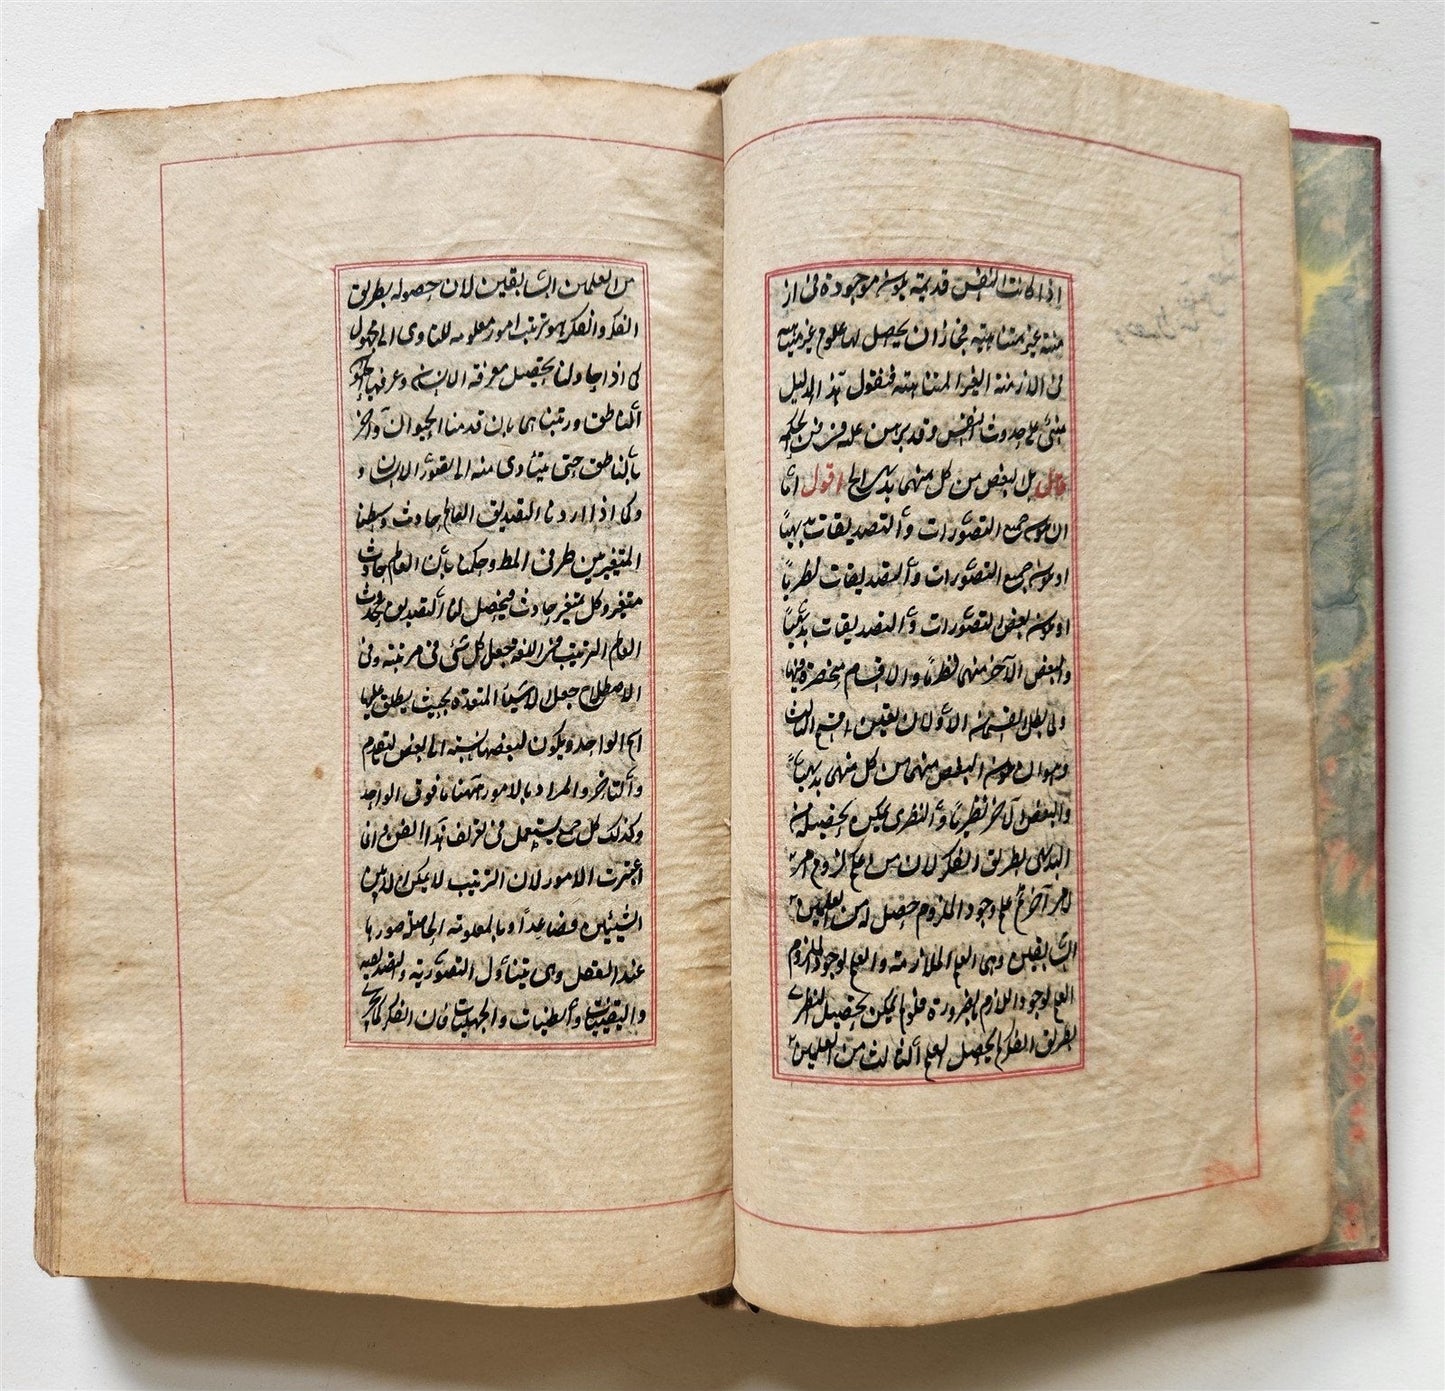 اذا كانت النفس قديمة موجودة فى از
منة غير متناهية فجاز ان يحصل لها علوم غير متناهية
فى الازمنة الغير المتناهية فنقول هذا الدليل
مبنى على حدوث النفس وقد برهن عليه فى فن الحكمة
قال بل البعض من كل منهما بديهى الخ اقول اما
ان يكون جميع التصورات والتصديقات بديهيا
او يكون جميع التصورات والتصديقات نظريا
او يكون بعض التصورات والتصديقات بديهيا
والبعض الآخر منهما نظريا والاقسام منحصرة فيها
ولما بطل القسمان الاولان تعين القسم الثالث
وهو ان يكون البعض من كل منهما بديهيا
والبعض الآخر نظريا والنظرى يمكن تحصيله من
البديهى بطريق الفكر لان من علم لزوم امر
لامر آخر ثم علم وجود الملزوم حصل له من العلمين
السابقين وهى العلم الملازمة والعلم لوجود الملزوم
العلم لوجود اللازم بالضرورة فلو لم يكن تحصيل النظرى
بطريق الفكر لم يحصل العلم الثالث من العلمين
من العلمين السابقين لان حصوله بطريق
الفكر والفكر هو ترتيب امور معلومة للتادى الى مجهول
كما اذا حاولنا تحصيل معرفة الانسان وعرفنا الحيوان
الناطق ورتبناهما بان قدمنا الحيوان واخر
بالناطق حتى يتادى منه الى تصور الانسان و
وكما اذا اردنا التصديق العالم حادث وسطنا
المتغير بين طرفى المط وحكمنا بان العالم حادث
متغير وكل متغير حادث فيحصل لنا التصديق بحدوث
العالم الترتيب فى اللغة جعل كل شئ فى مرتبته وفى
الاصطلاح جعل الاشياء المتعددة بحيث يطلق عليها
اسم الواحد ويكون لبعضها نسبة الى بعض بالتقدم
والتاخر والمراد بالامور ههنا ما فوق الواحد
وكذلك كل جمع يستعمل فى تعريف هذا الفن وانما
اعتبرت الامور لان الترتيب لا يمكن الا بين
الشيئين فصاعدا وبالمعلومة الحاصلة صورها
عند العقل وهى يتناول التصورية والتصديقية
واليقينيات والظنيات والجهليات فان الفكر كما يجرى